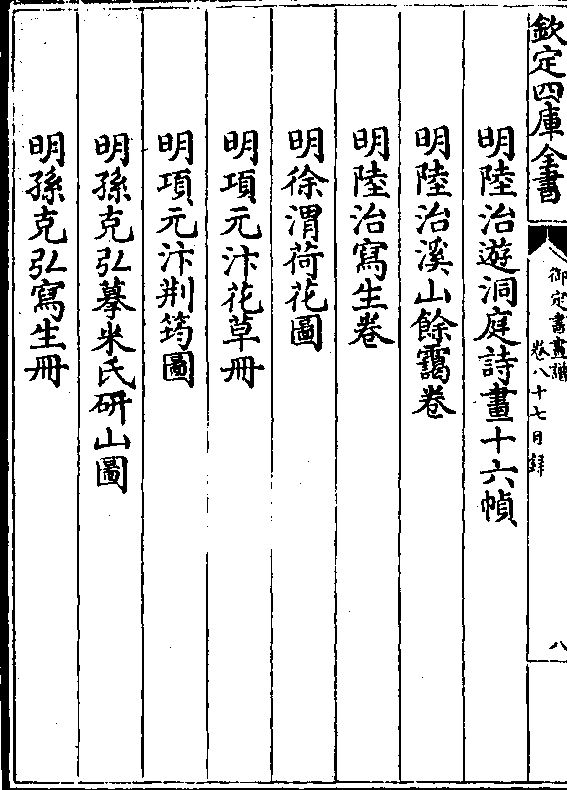 欽定四庫全書
御定書畫譜
卷八十七目録
八
明陸治遊洞庭詩畫十六幀
明陸治溪山餘靄卷
明陸治寫生卷
明徐渭荷花圖
明項元汴花草冊
明項元汴荆筠圖
明孫克弘摹米氏研山圖
明孫克弘寫生冊